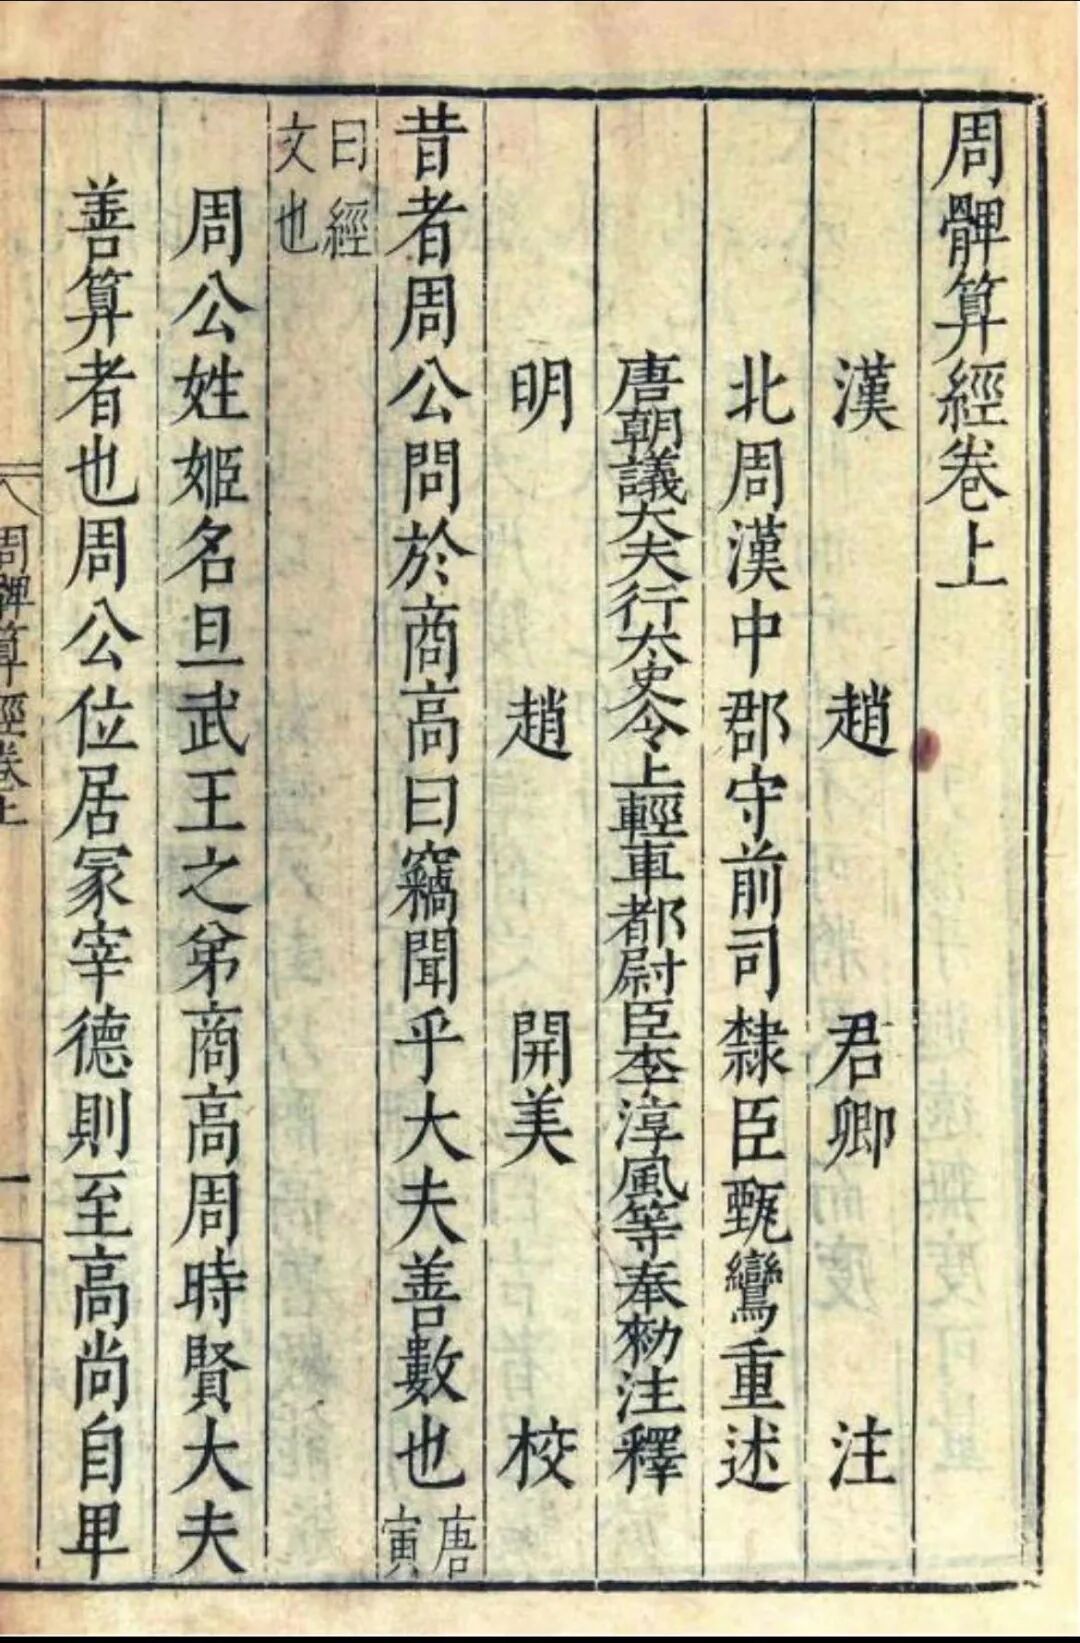 周髀算經卷上
漢 趙 君卿 注
北周漢中郡守前司隸臣甄鸞重述
唐朝議大夫行太史令上輕車都尉臣李淳風等奉勑注釋
明 趙 開美 校
昔者周公問於商高曰竊聞乎大夫善數也
唐
寅
曰經
文也
周公姓姬名旦武王之弟商高周時賢大夫
善算者也周公位居冢宰德則至高尚自卑
周髀算經卷上
一